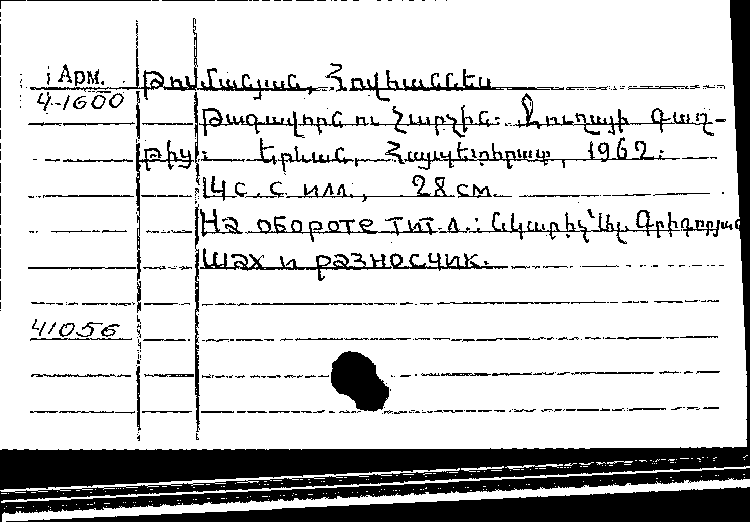 Арм. Թումանյան, Հովհաննես
4-1600
Թագավորն ու չարչին։ Ջուղայի գաղ-
թից։ Երևան, Հայպետհրատ, 1962։
14 с. с илл., 28 см.
На обороте тит. л.: Նկարիչ՝ Ալ. Գրիգորյան
Шах и разносчик.
41056